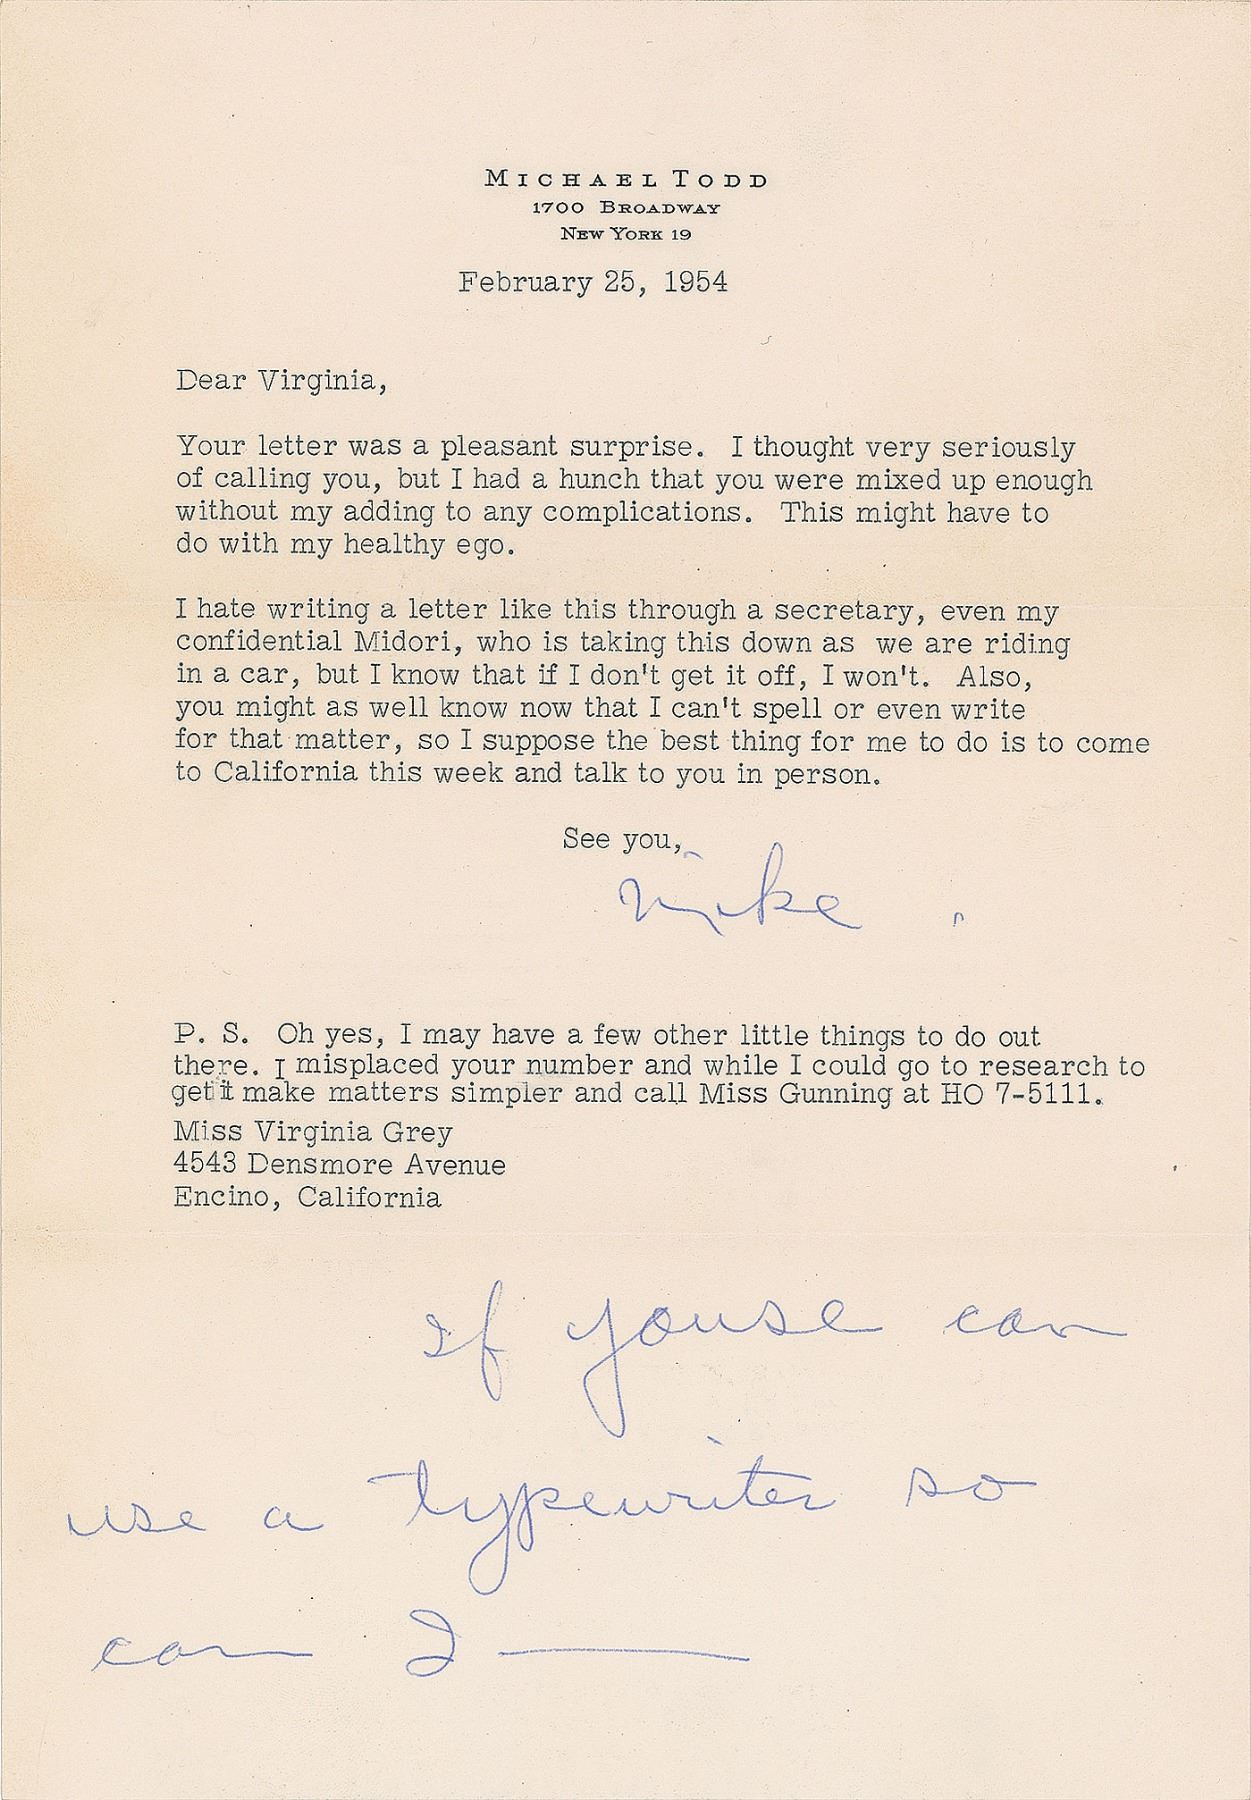 MICHAEL TODD
1700 BROADWAY
NEW YORK 19
February 25, 1954
Dear Virginia,
Your letter was a pleasant surprise. I thought very seriously
of calling you, but I had a hunch that you were mixed up enough
without my adding to any complications. This might have to
do with my healthy ego.
I hate writing a letter like this through a secretary, even my
confidential Midori, who is taking this down as we are riding
in a car, but I know that if I don't get it off, I won't. Also,
you might as well know now that I can't spell or even write
for that matter, so I suppose the best thing for me to do is to come
to California this week and talk to you in person.
See you,
Mike
P. S. Oh yes, I may have a few other little things to do out
there. I misplaced your number and while I could go to research to
get it make matters simpler and call Miss Gunning at HO 7-5111.
Miss Virginia Grey
4543 Densmore Avenue
Encino, California
If youse can
use a typewriter so
can I —